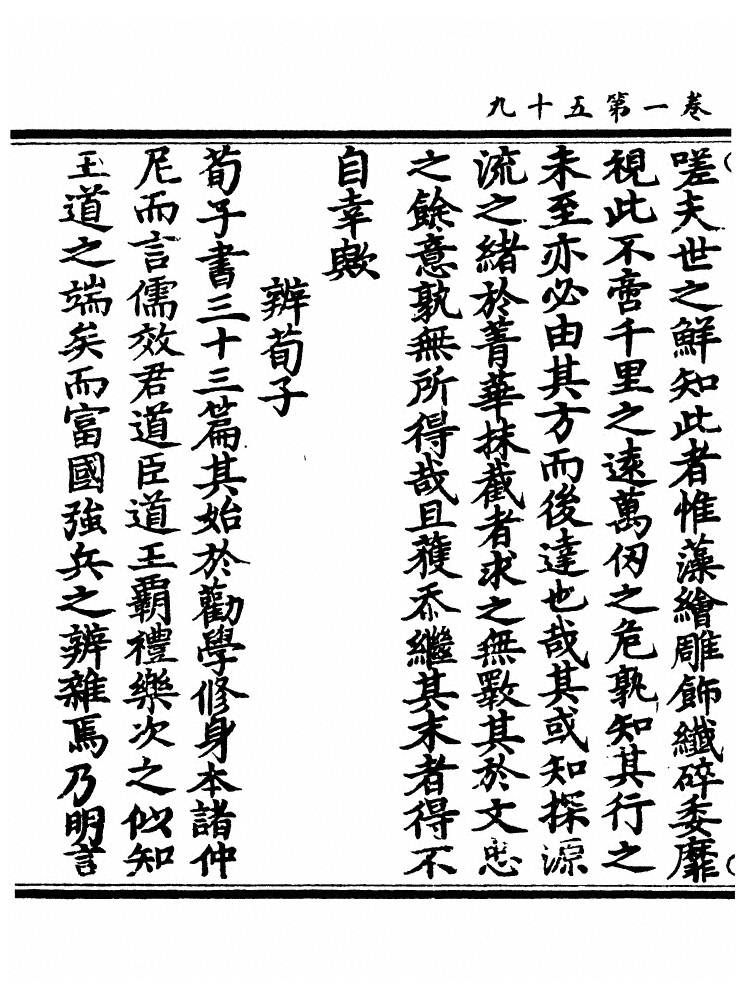 卷一第五十九
嗟夫世之鮮知此者惟藻繪雕飾纖碎委靡
視此不啻千里之遠萬仭之危孰知其行之
未至亦必由其方而後達也哉其或知探源
流之緒於菁華抹截者求之無斁其於文思
之餘意孰無所得哉且蒦忝繼其末者得不
自幸歟
辨荀子
荀子書三十三篇其始於勸學修身本諸仲
尼而言儒效君道臣道王覇禮樂次之似知
王道之端矣而富國強兵之辨雜焉乃明言